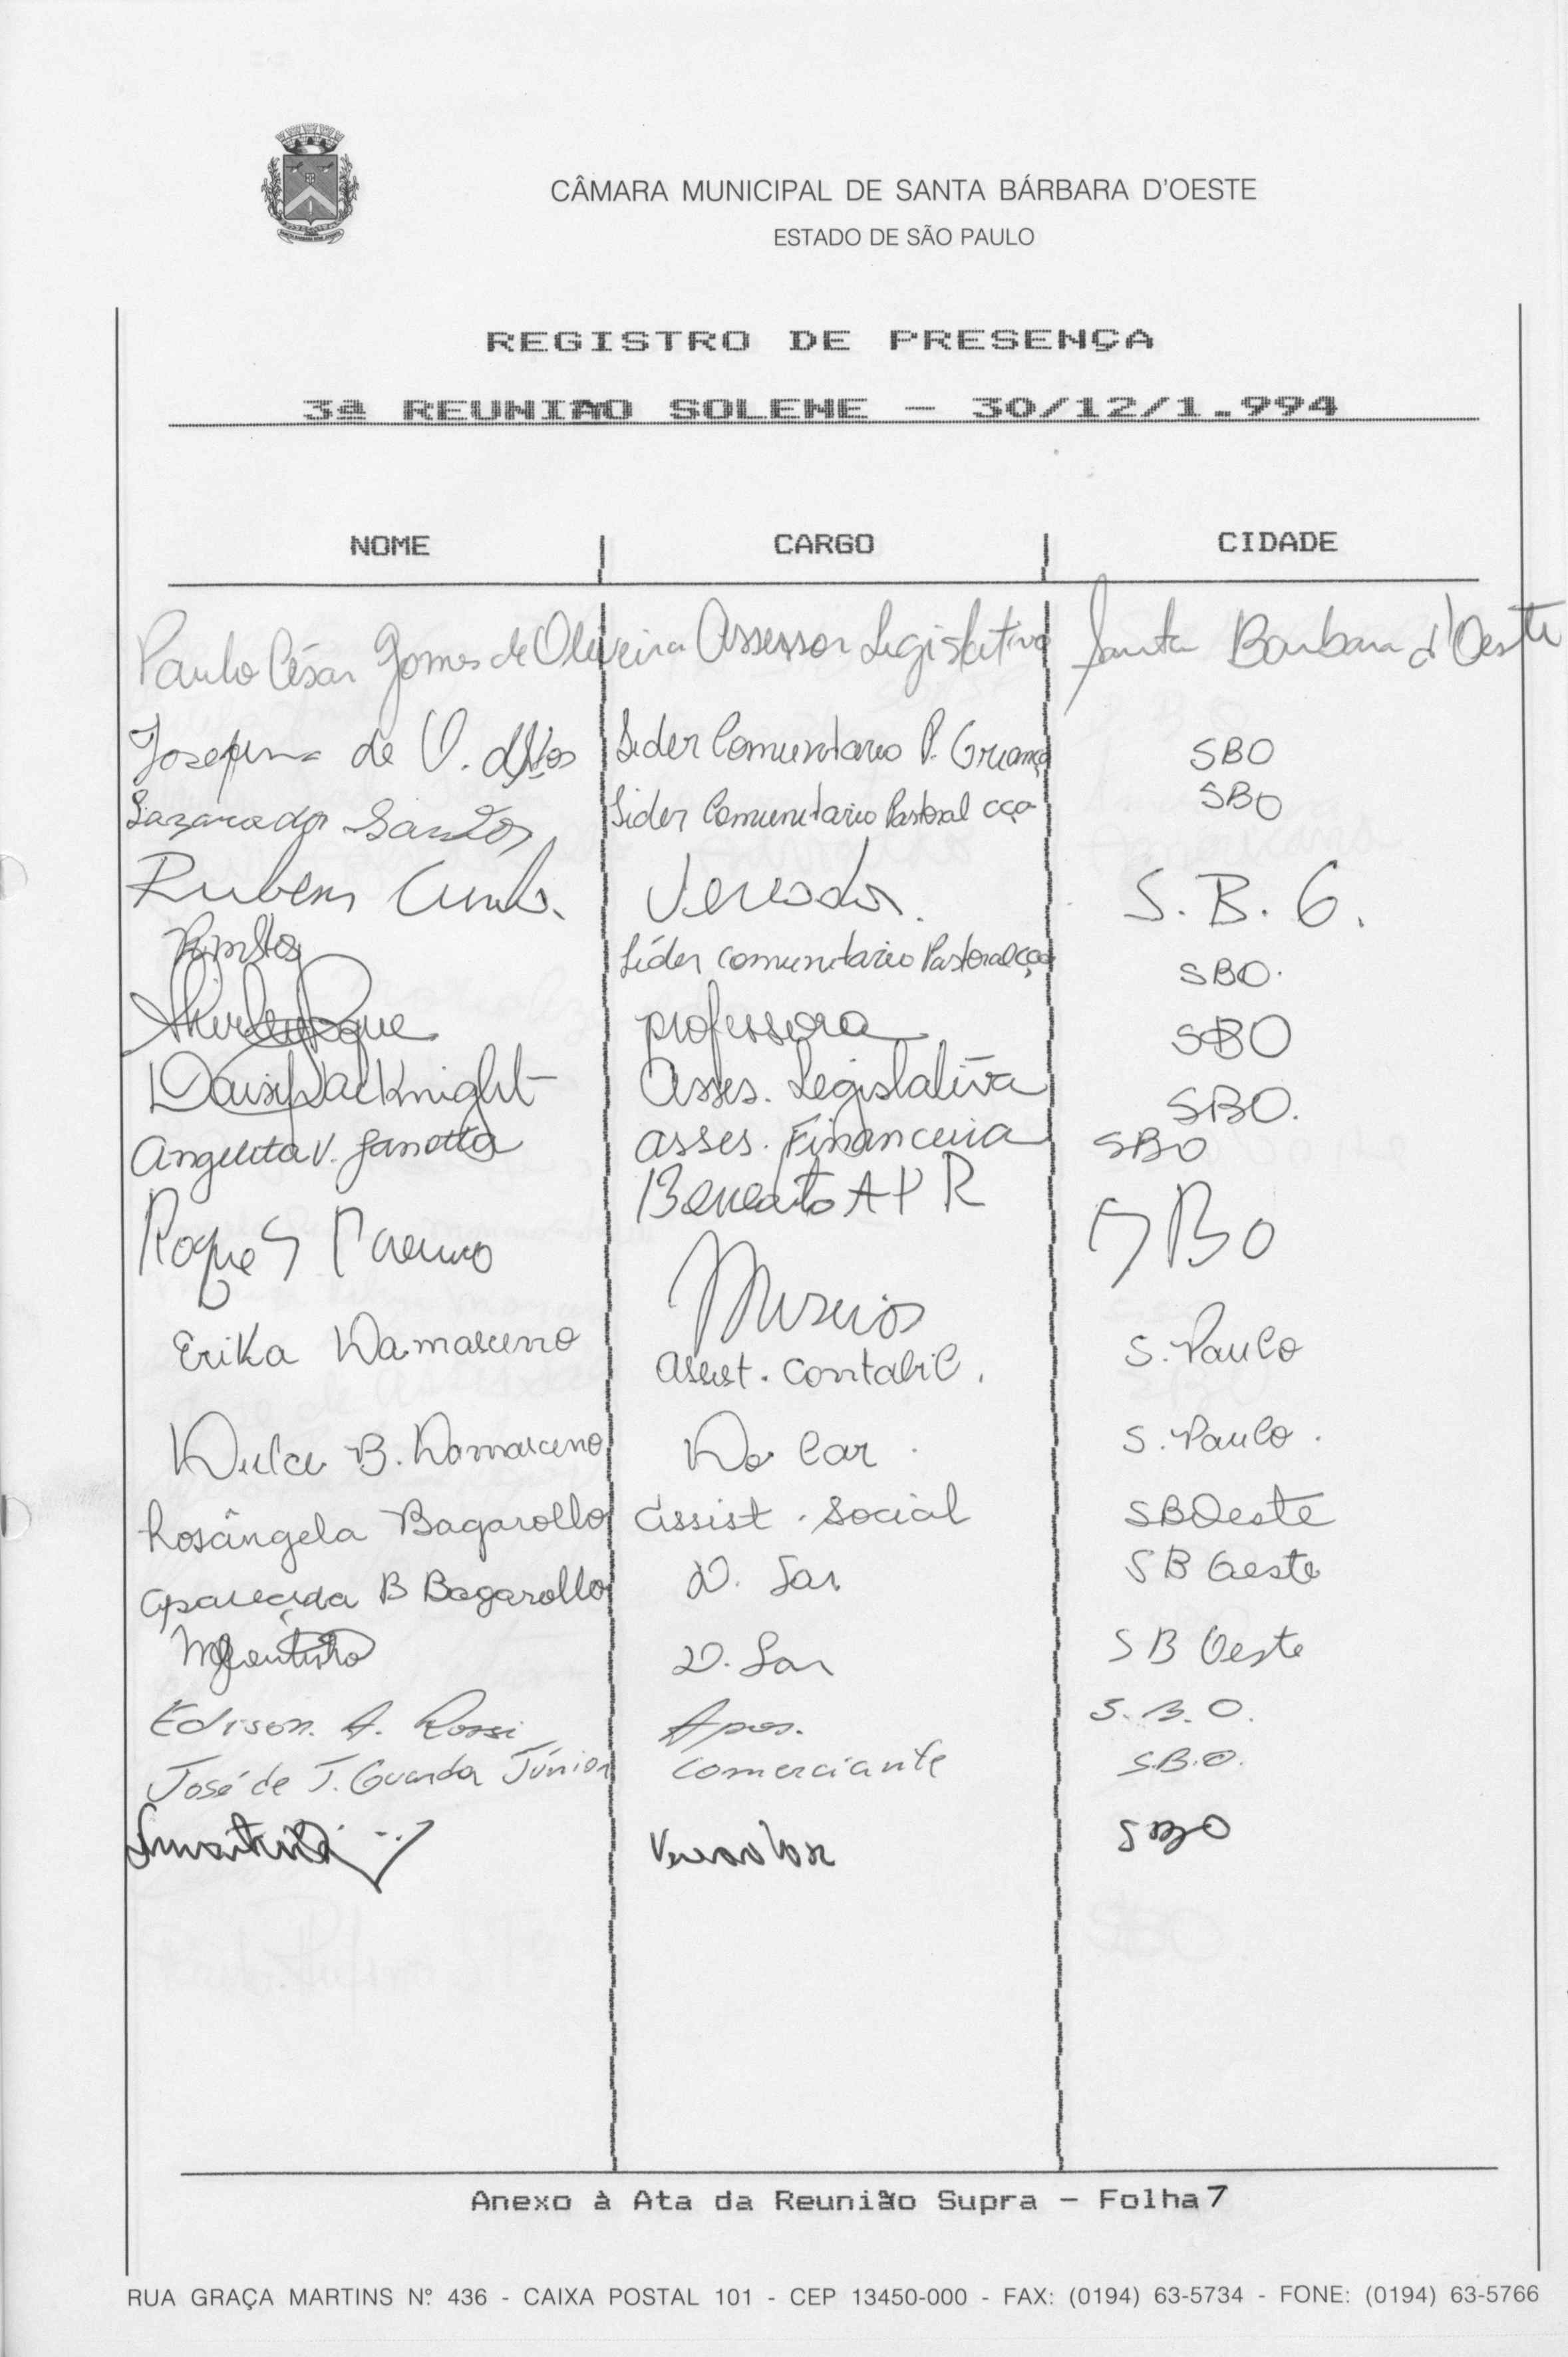 CÂMARA MUNICIPAL DE SANTA BÁRBARA D'OESTE
ESTADO DE SÃO PAULO
REGISTRO DE PRESENÇA
3ª REUNIÃO SOLENE - 30/12/1.994
NOME CARGO CIDADE
Paulo César Gomes de Oliveira Assessor Legislativo Santa Barbara d'Oeste
Josefina de V. Lider Comunitario P. Criança SBO
Santos Lider Comunitario Pastoral cça SBO
Rubens Vereador. S. B. O.
Líder comunitario Pastoral cça SBO.
professora SBO
Asses. Legislativa SBO.
Angelita V. Asses. Financeira SBO
Roque SBO
Erika Damasceno Assist. Contabil. S. Paulo
Dulce B. Damasceno Do Lar. S. Paulo.
Rosângela Bagarollo Assist. Social SBOeste
Aparecida B Bagarollo D. Lar SB Oeste
D. Lar SB Oeste
Edison. A. Rossi Apos. S.B.O.
José de J. Guarda Júnior Comerciante S.B.O.
Vereador SBO
Anexo à Ata da Reunião Supra - Folha 7
RUA GRAÇA MARTINS Nº 436 - CAIXA POSTAL 101 - CEP 13450-000 - FAX: (0194) 63-5734 - FONE: (0194) 63-5766